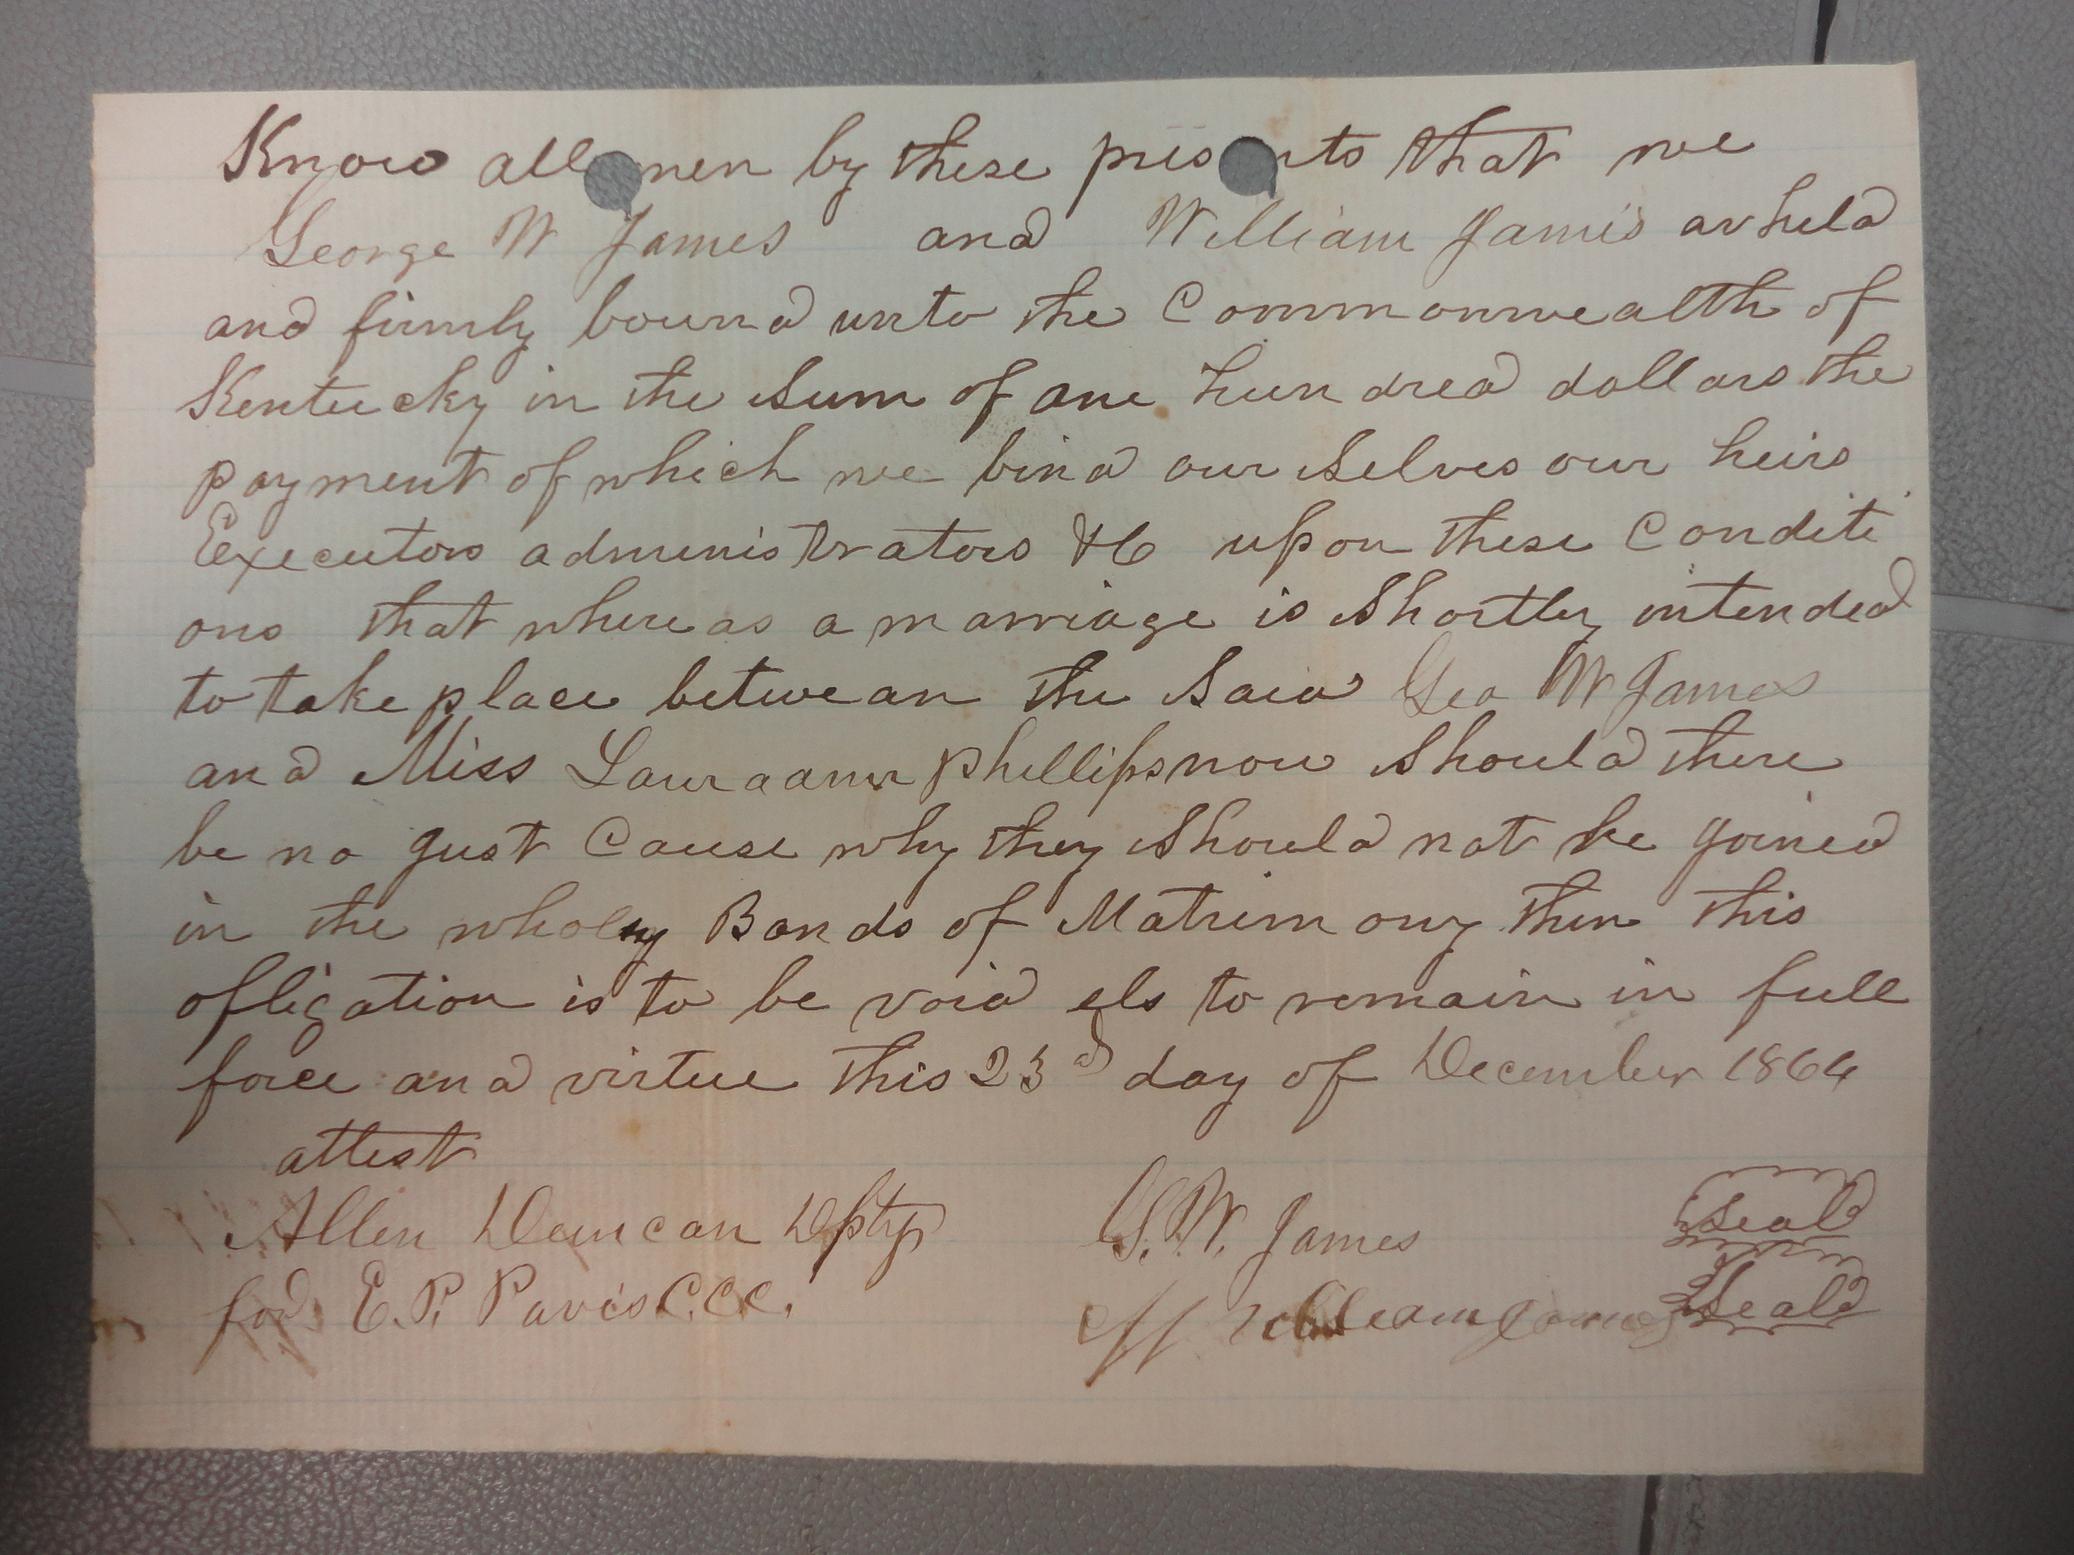 Know all men by these presents that we
George W James and William James ar held
and firmly bound unto the Commonwealth of
Kentucky in the Sum of one hundred dollars the
payment of which we bind our Selves our heirs
Executors administrators &C upon these Conditi
ons that where as a marriage is Shortly intended
to take place betwean the Said Geo W James
and Miss Lauraann Phillips now Should there
be no Just Cause why they Should not be Joined
in the wholy Bands of Matrimony then this
obligation is to be void els to remain in full
force and virtue this 23d day of December 1864
attest
Allen Duncan Dpty G.W. James Seal
for E.P. Davis C.C.C. William James Seal